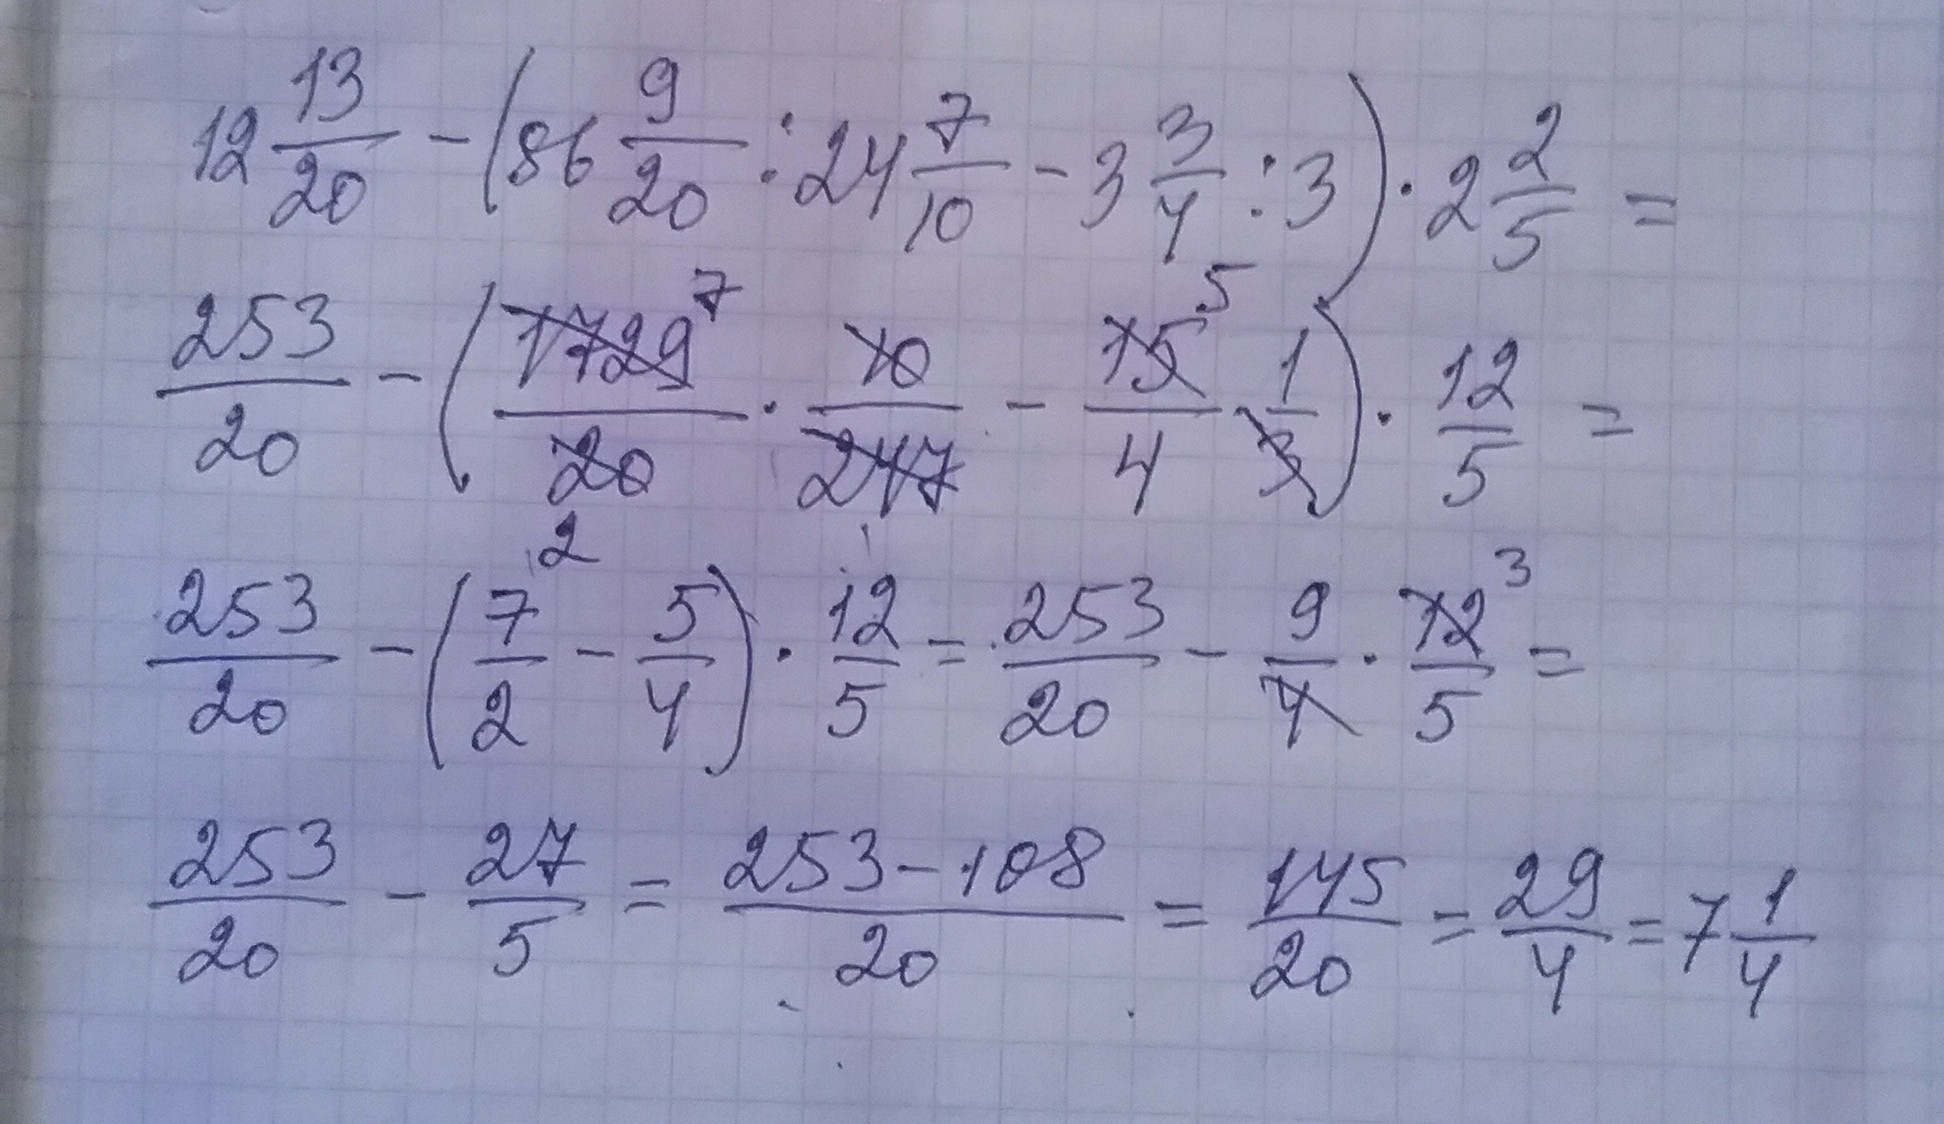 12 13/20 - (86 9/20 : 24 7/10 - 3 3/4 : 3) · 2 2/5 =
253/20 - (1729 7/20 2 · 10/247 - 15 5/4 · 1/3) · 12/5 =
253/20 - (7/2 - 5/4) · 12/5 = 253/20 - 9/4 · 12 3/5 =
253/20 - 27/5 = 253-108/20 = 145/20 = 29/4 = 7 1/4